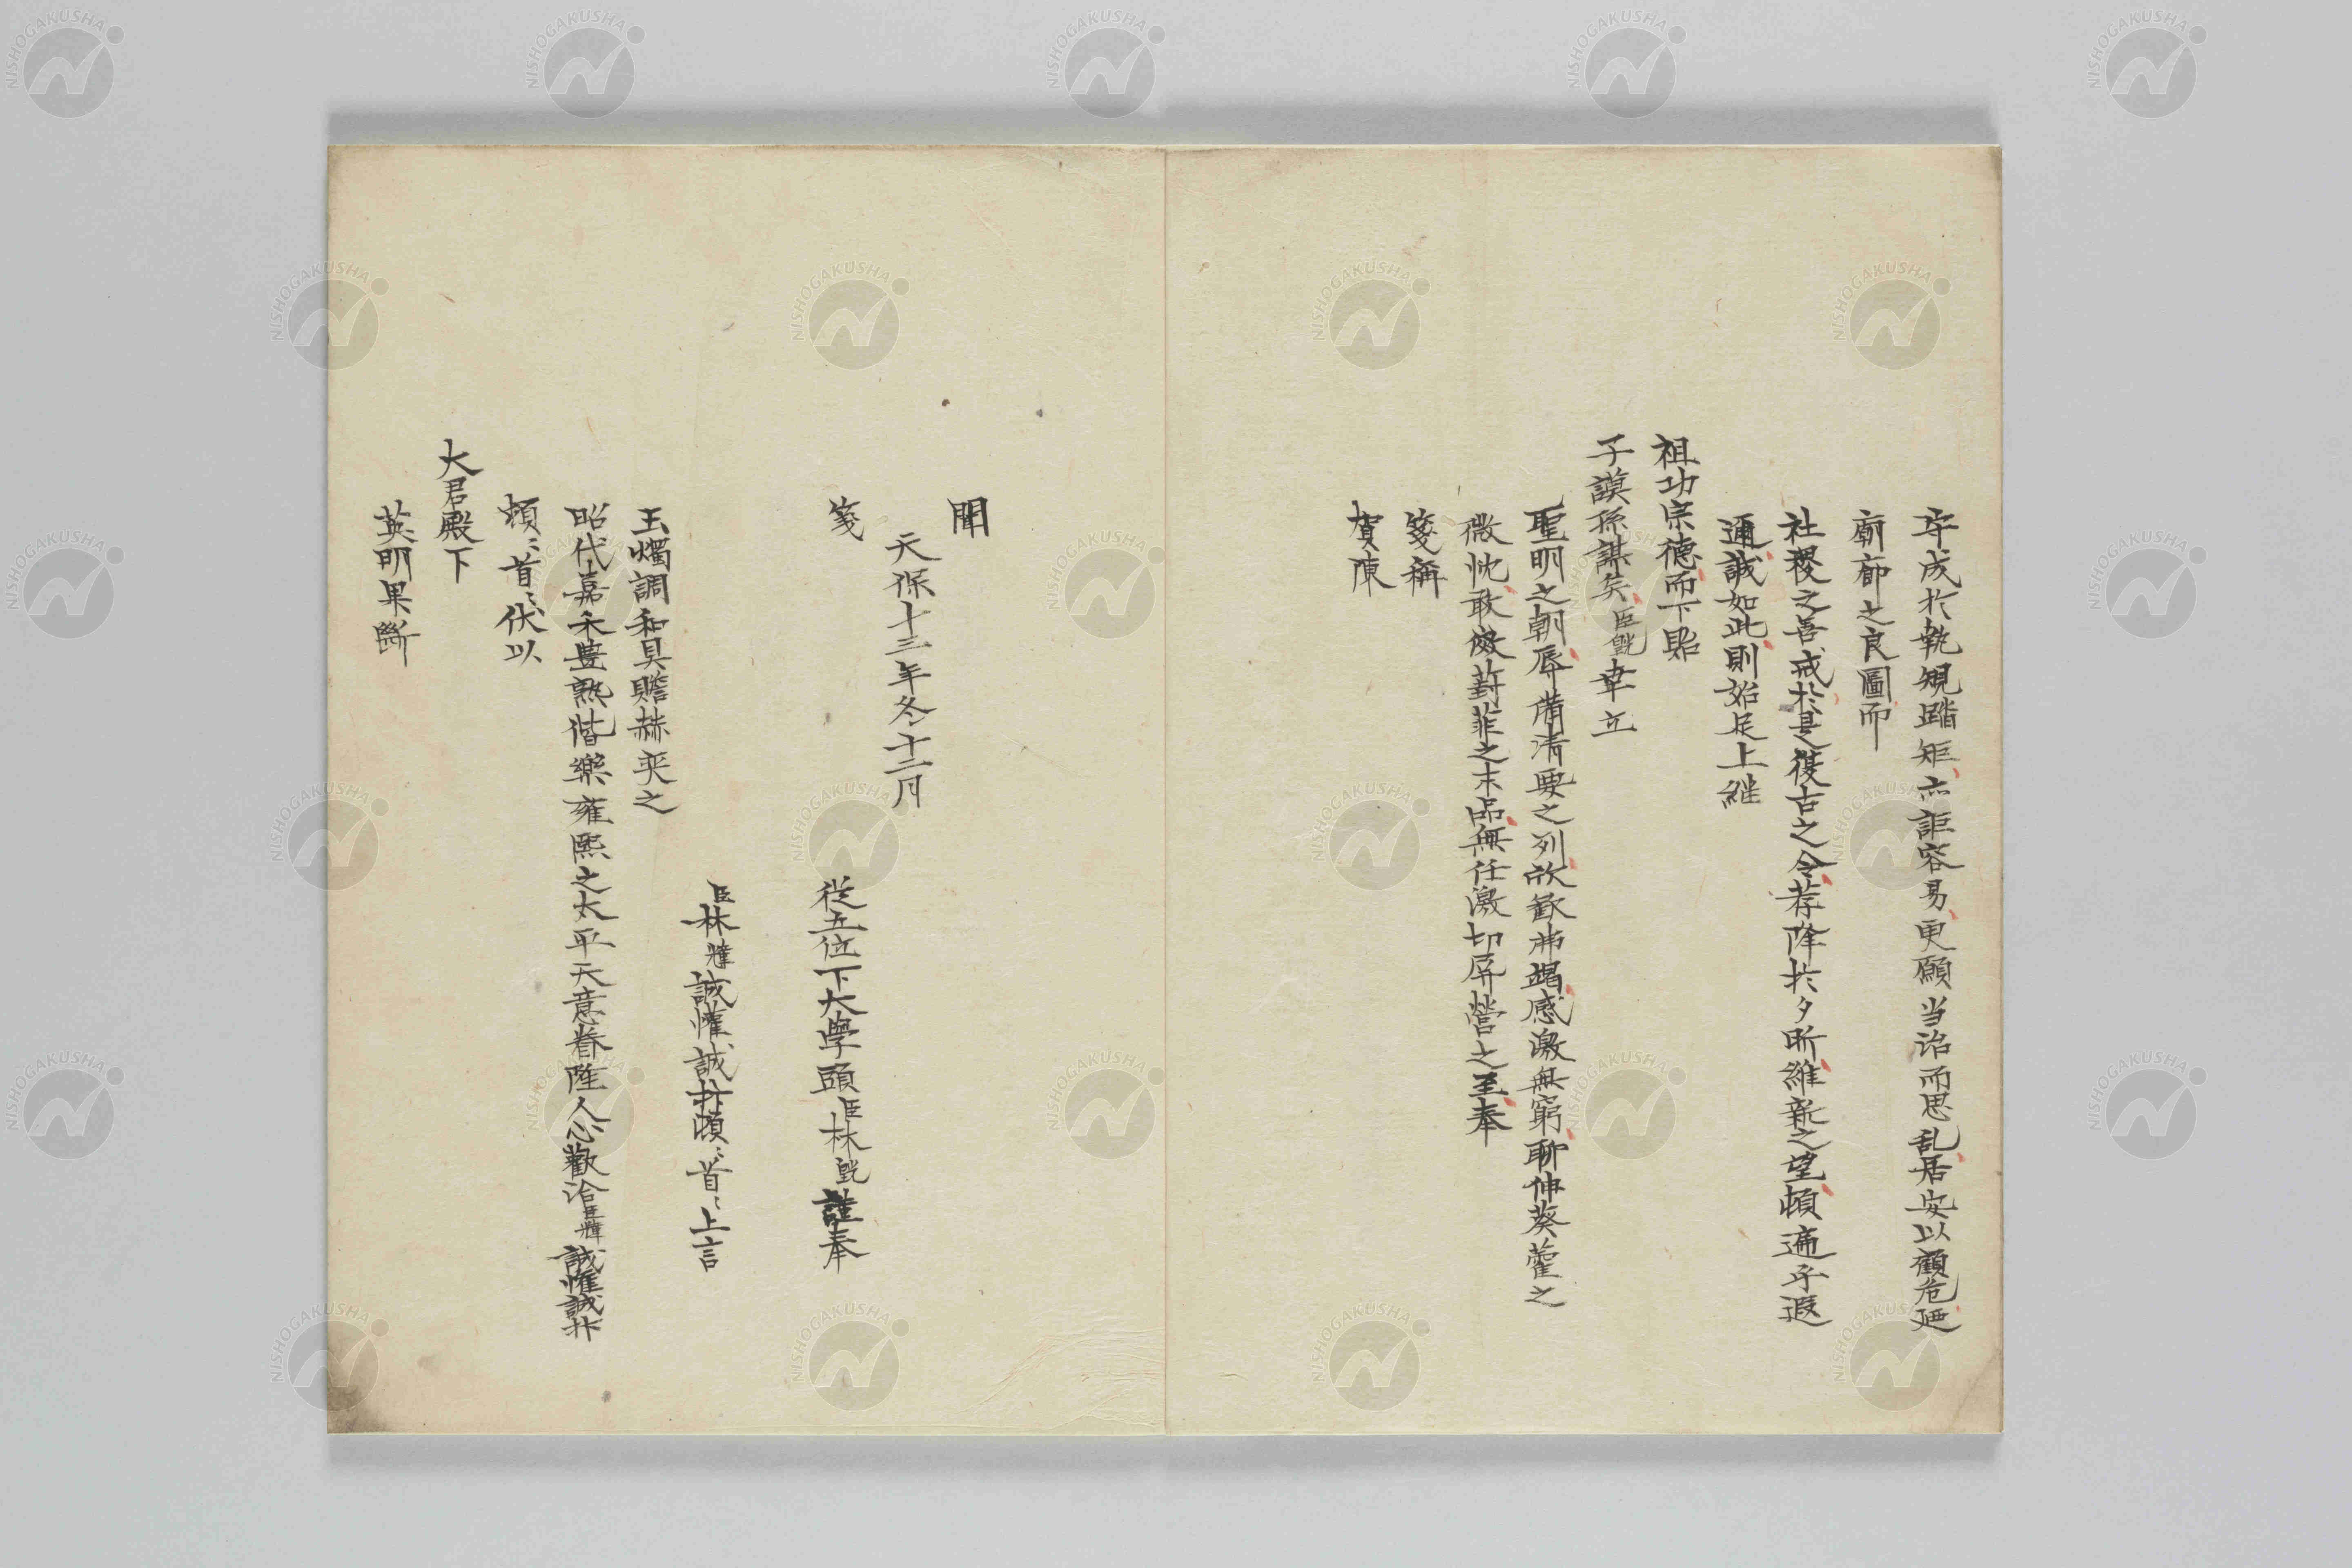 守成於執規踏矩亦詎容易更願当治而思乱居安以顧危廼
廟廊之良圖而
社稷之善戒於是復古之令荐降於夕昕維新之望頓遍乎遐
邇誠如此則始足上継
祖功宗德而下貽
子謨孫謀矣臣𩇕幸立
聖明之朝辱備清要之列故歓怖竭感激無窮聊伸葵藿之
微忱敢倣葑菲之末品無任激切屏營之至奉
箋稱
賀陳
聞
天保十三年冬十二月
箋
從五位下大學頭臣林 謹奉
臣林韑誠懽誠抃頓〻首〻上言
玉燭調和具贍赫奕之
昭代嘉禾豊熟偕樂雍熙之太平天意眷隆人心歡洽臣韑誠懽誠抃
頓〻首〻伏以
大君殿下
英明果斷
NISHOGAKUSHA